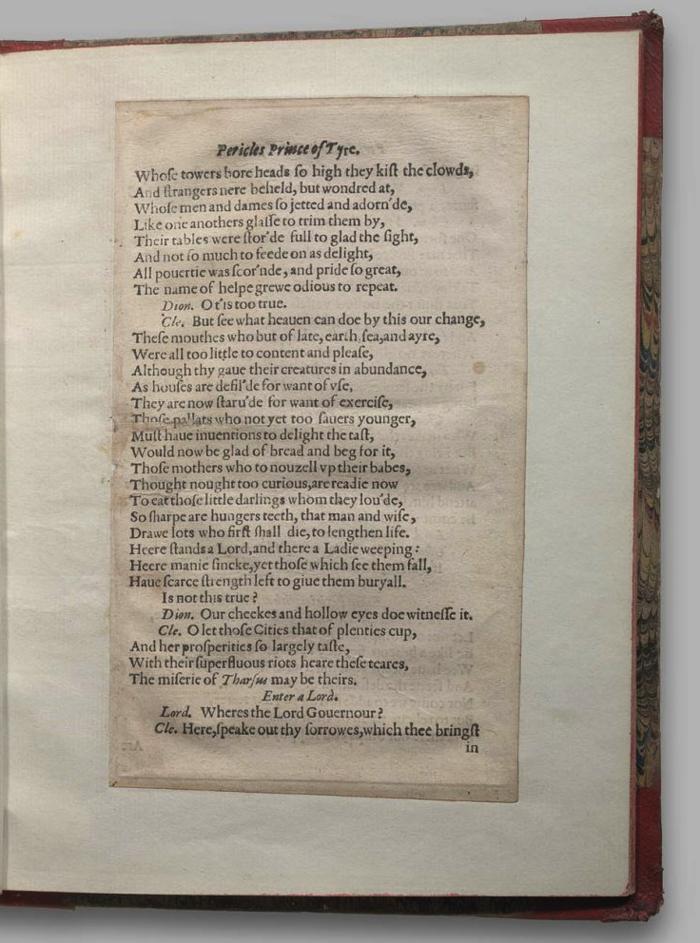 Pericles Prince of Tyre.
Whoſe towers bore heads ſo high they kiſt the clowds,
And ſtrangers nere beheld, but wondred at,
Whoſe men and dames ſo jetted and adorn'de,
Like one anothers glaſſe to trim them by,
Their tables were ſtor'de full to glad the ſight,
And not ſo much to feede on as delight,
All pouertie was ſcor'nde, and pride ſo great,
The name of helpe grewe odious to repeat.
Dion. O t'is too true.
Cle. But ſee what heauen can doe by this our change,
Theſe mouthes who but of late, earth, ſea, and ayre,
Were all too little to content and pleaſe,
Although thy gaue their creatures in abundance,
As houſes are defil'de for want of vſe,
They are now ſtaru'de for want of exerciſe,
Thoſe pallats who not yet too ſauers younger,
Muſt haue inuentions to delight the taſt,
Would now be glad of bread and beg for it,
Thoſe mothers who to nouzell vp their babes,
Thought nought too curious, are readie now
To eat thoſe little darlings whom they lou'de,
So ſharpe are hungers teeth, that man and wife,
Drawe lots who firſt ſhall die, to lengthen life.
Heere ſtands a Lord, and there a Ladie weeping:
Heere manie ſincke, yet thoſe which ſee them fall,
Haue ſcarce ſtrength left to giue them buryall.
Is not this true?
Dion. Our cheekes and hollow eyes doe witneſſe it.
Cle. O let thoſe Cities that of plenties cup,
And her proſperities ſo largely taſte,
With their ſuperfluous riots heare theſe teares,
The miſerie of Tharſus may be theirs.
Enter a Lord.
Lord. Wheres the Lord Gouernour?
Cle. Here, ſpeake out thy ſorrowes, which thee bringſt
in